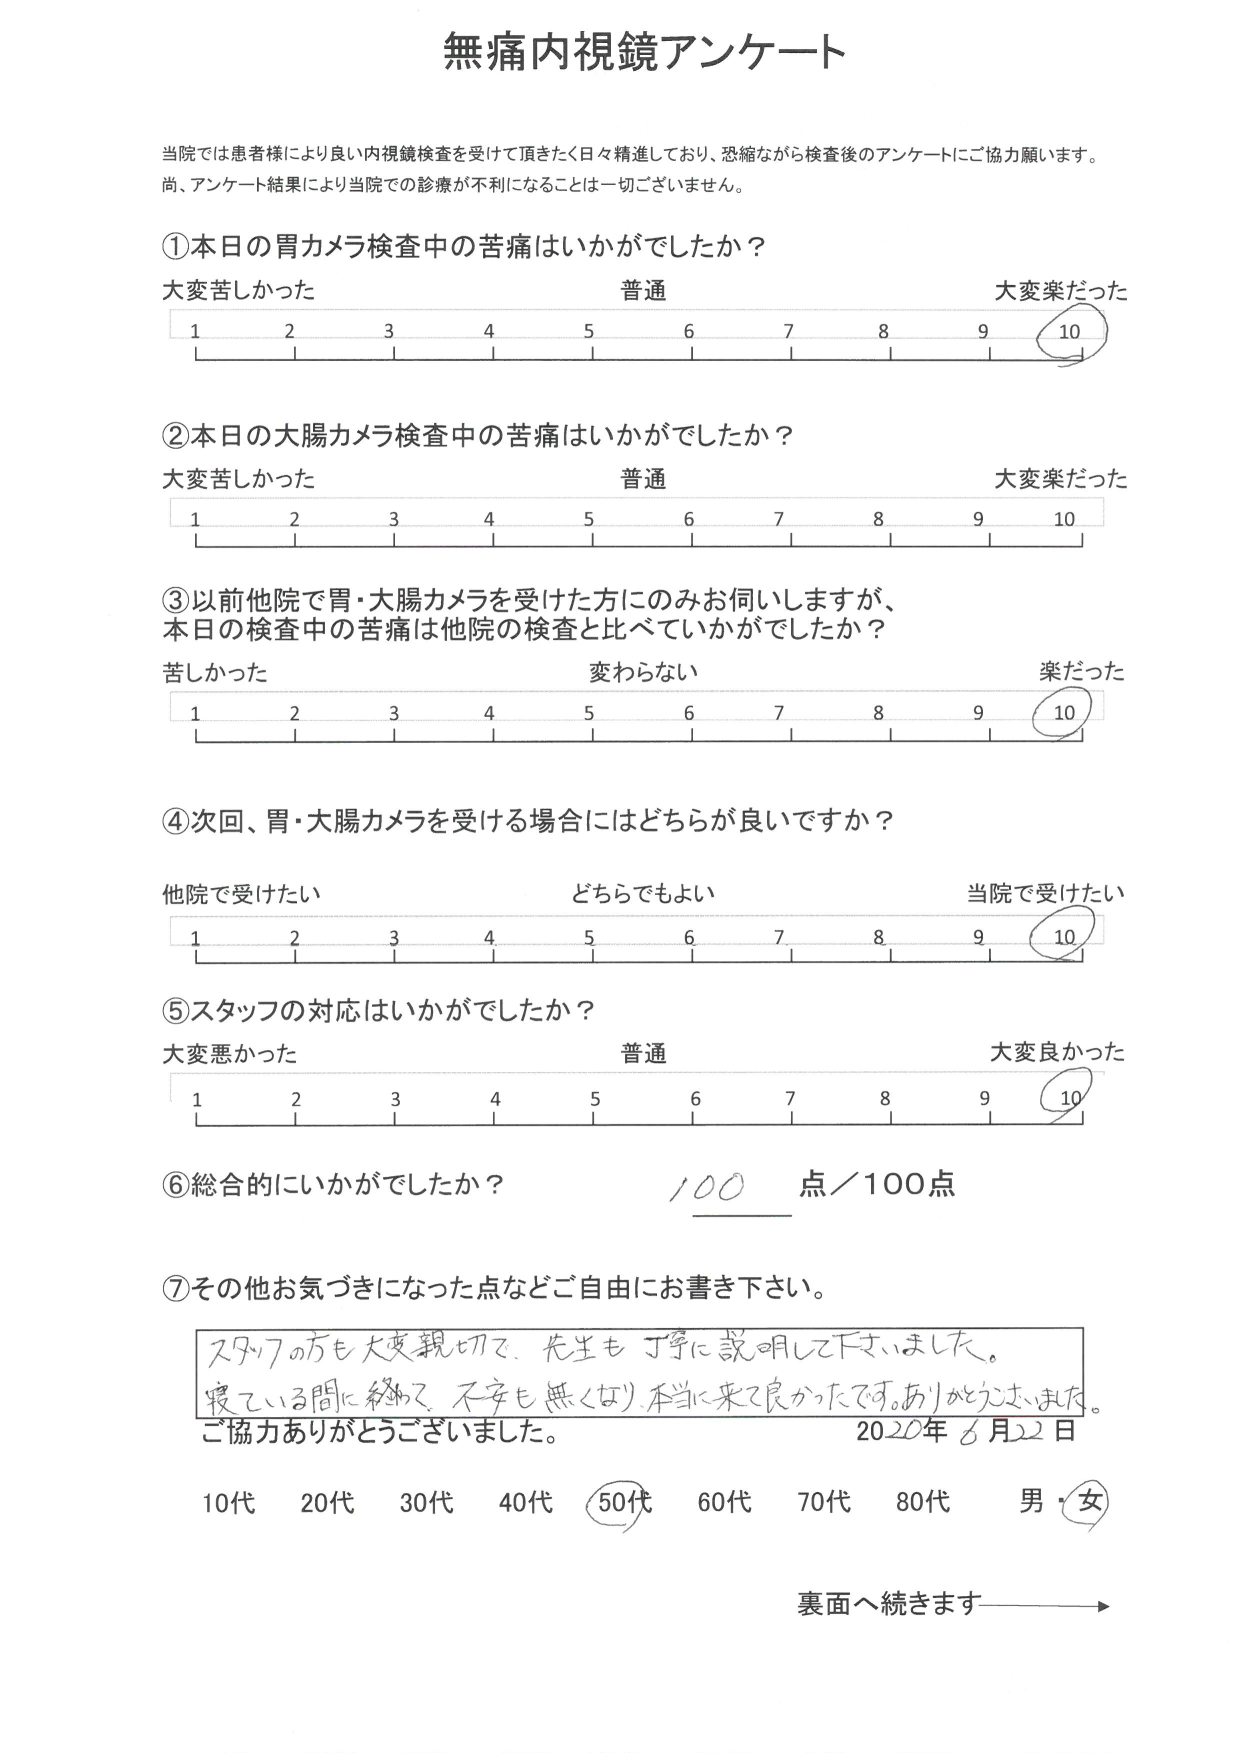 無痛内視鏡アンケート
当院では患者様により良い内視鏡検査を受けて頂きたく日々精進しており、恐縮ながら検査後のアンケートにご協力願います。
尚、アンケート結果により当院での診療が不利になることは一切ございません。
①本日の胃カメラ検査中の苦痛はいかがでしたか?
大変苦しかった 普通 大変楽だった
1 2 3 4 5 6 7 8 9 10
②本日の大腸カメラ検査中の苦痛はいかがでしたか?
大変苦しかった 普通 大変楽だった
1 2 3 4 5 6 7 8 9 10
③以前他院で胃・大腸カメラを受けた方にのみお伺いしますが、
本日の検査中の苦痛は他院の検査と比べていかがでしたか?
苦しかった 変わらない 楽だった
1 2 3 4 5 6 7 8 9 10
④次回、胃・大腸カメラを受ける場合にはどちらが良いですか?
他院で受けたい どちらでもよい 当院で受けたい
1 2 3 4 5 6 7 8 9 10
⑤スタッフの対応はいかがでしたか?
大変悪かった 普通 大変良かった
1 2 3 4 5 6 7 8 9 10
⑥総合的にいかがでしたか? 100 点/100点
⑦その他お気づきになった点などご自由にお書き下さい。
スタッフの方も大変親切で、先生も丁寧に説明して下さいました。
寝ている間に終わって、不安も無くなり、本当に来て良かったです。ありがとうございました。
ご協力ありがとうございました。 2020年6月22日
10代 20代 30代 40代 50代 60代 70代 80代 男・女
裏面へ続きます